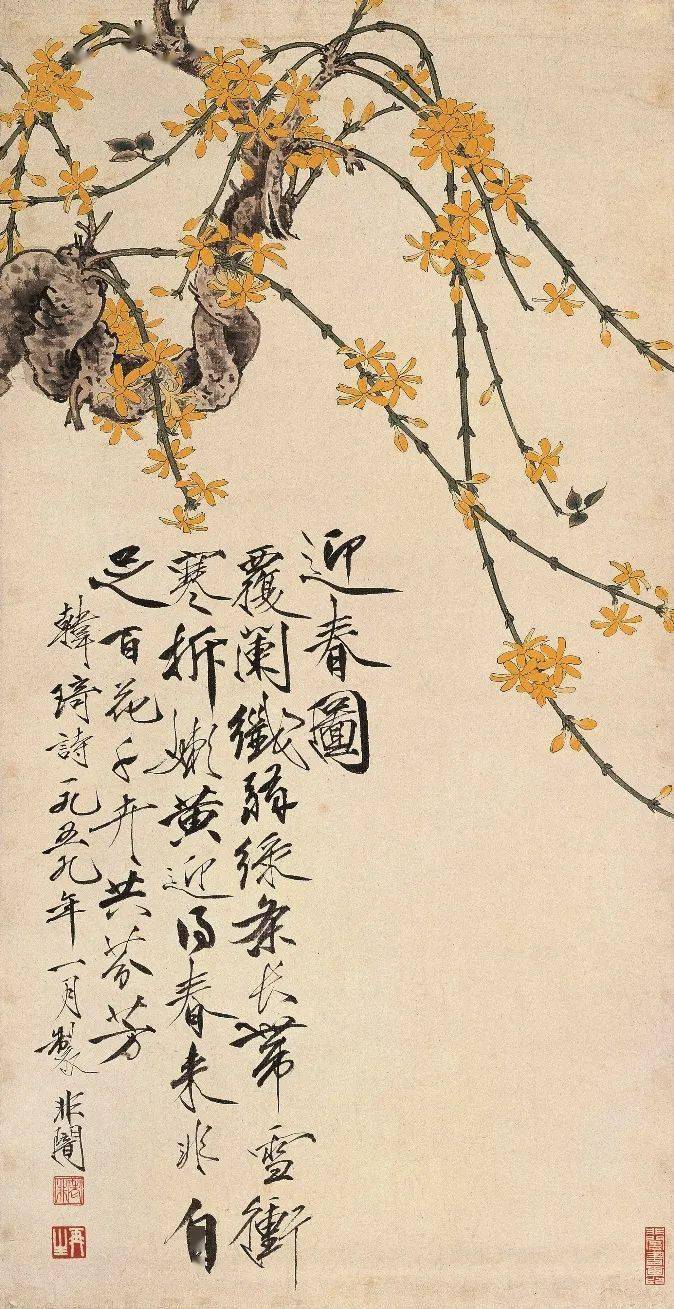 迎春圖
覆闌纖弱綠条长帶雪衝
寒拆嫩黄迎得春来非自
足百花千卉共芬芳
韓琦詩一九五九年一月製非闇
再生